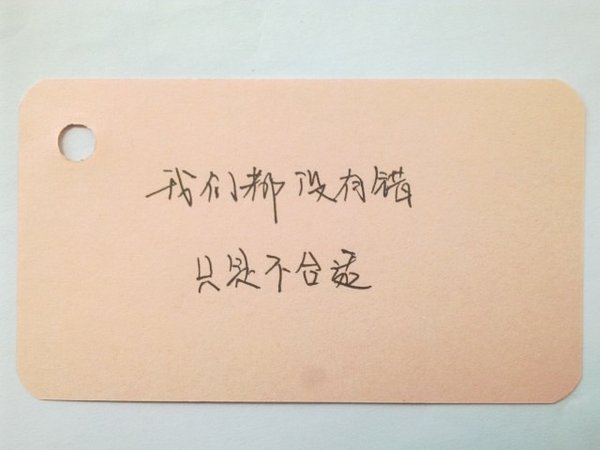 我们都没有错
只是不合适